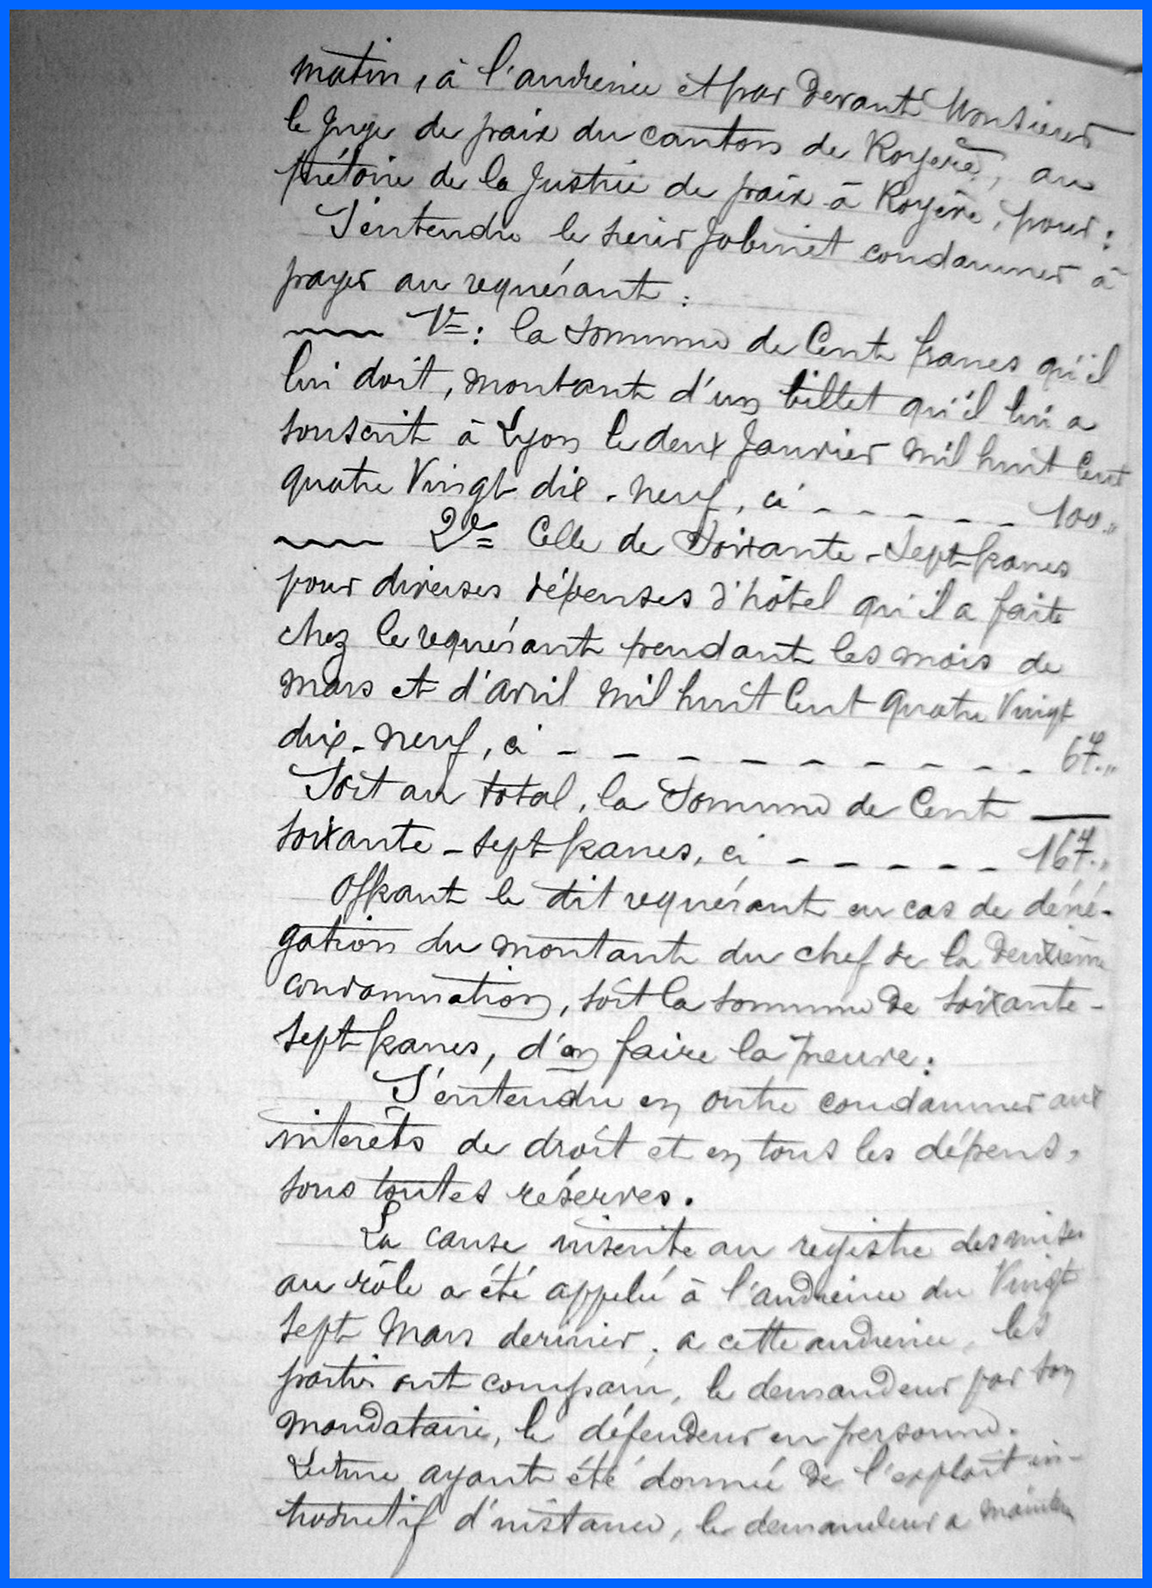 matin, à l'audience et par devant Monsieur
le Juge de paix du canton de Royère, au
prétoire de la Justice de paix à Royère, pour :
S'entendre le sieur Jobinet condamner à
payer au requérant :
1º : la somme de Cent francs qu'il
lui doit, montant d'un billet qu'il lui a
souscrit à Lyon le deux Janvier mil huit Cent
quatre Vingt dix-neuf, ci _ _ _ _ _ 100,,
2º = Celle de Soixante-Sept francs
pour diverses dépenses d'hôtel qu'il a faite
chez le requérant pendant les mois de
Mars et d'avril mil huit Cent quatre Vingt
dix-neuf, ci _ _ _ _ _ _ _ _ _ _ 67.,,
Soit au total, la Somme de Cent
soixante-sept francs, ci _ _ _ _ _ 167.,,
Offrant le dit requérant en cas de déné-
gation du montant du chef de la deuxième
condamnation, soit la somme de soixante-
sept francs, d'en faire la preuve ;
S'entendre en outre condamner aux
intérêts de droit et en tous les dépens,
sous toutes réserves.
La cause inscrite au registre des mises
au rôle a été appelée à l'audience du Vingt
sept Mars dernier ; a cette audience, les
parties ont comparu, le demandeur par son
mandataire, le défendeur en personne.
Lecture ayant été donnée de l'exploit in-
troductif d'instance, le demandeur a